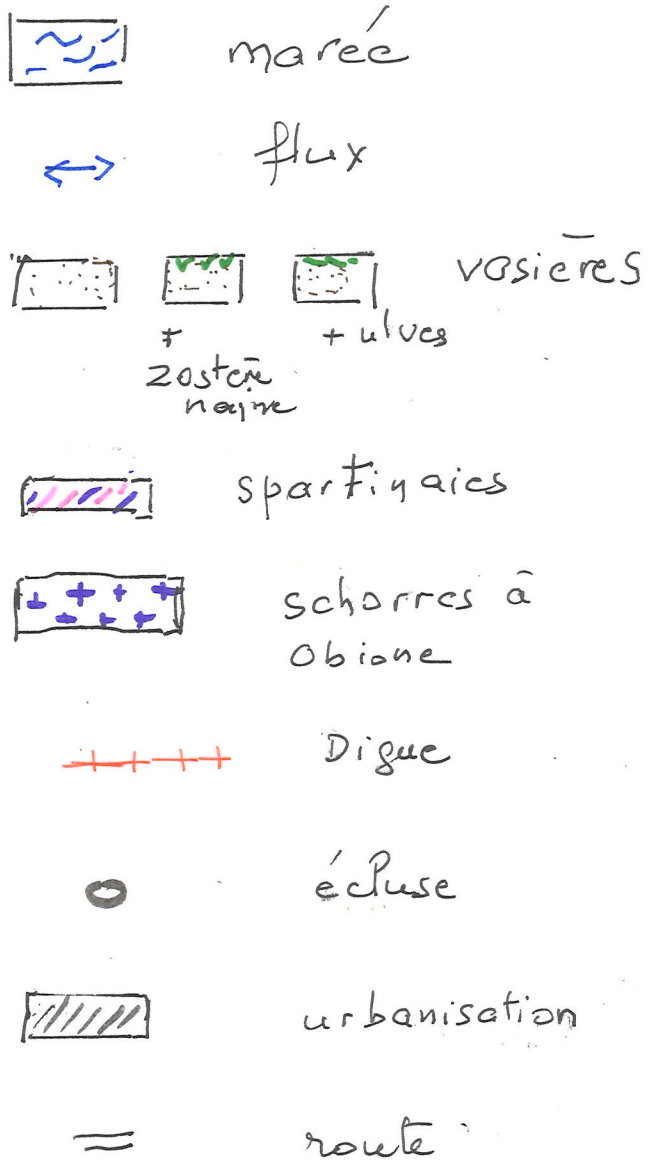 marée
flux
vasières
+ zostère naine
+ ulves
spartinaies
schorres à
Obione
Digue
écluse
urbanisation
route